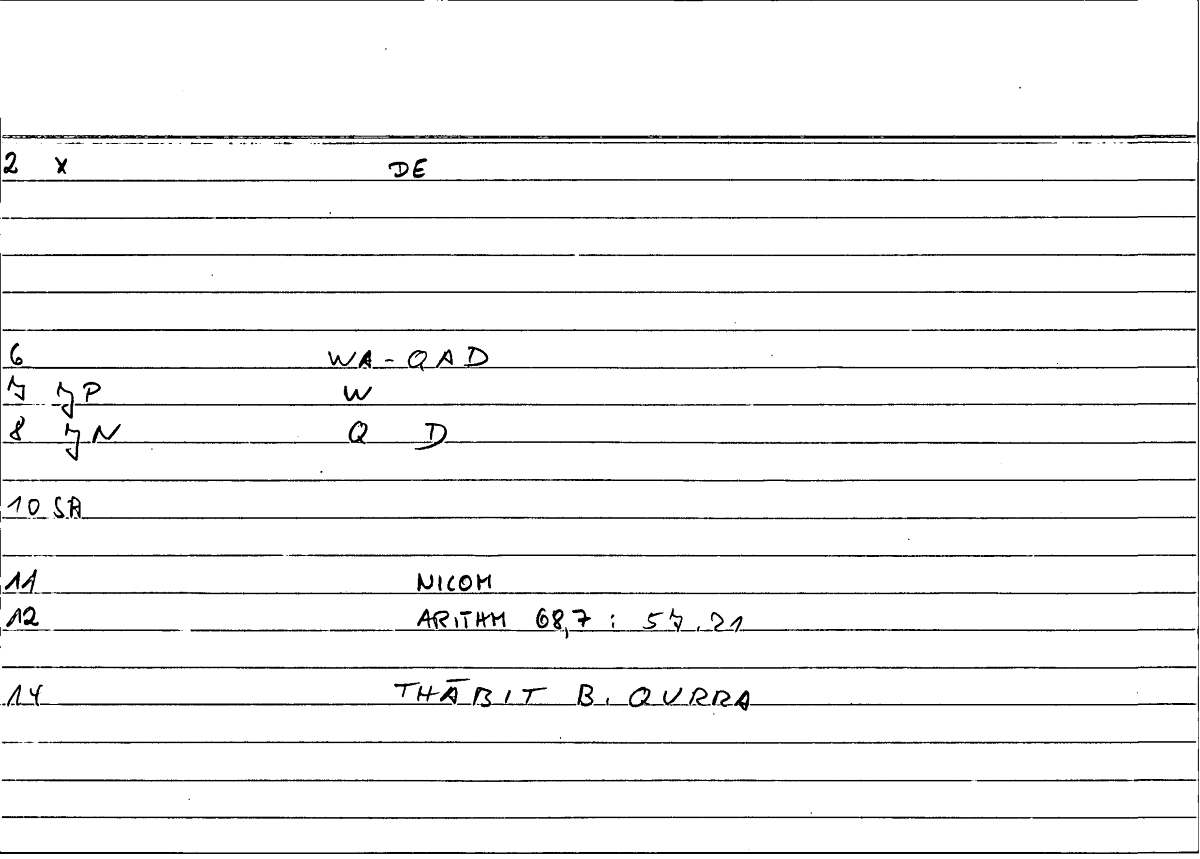 2 X DE
6 WA-QAD
7 JP W
8 JN Q D
10 SA
11 NICOM
12 ARITHM 68,7 : 57.21
14 THĀBIT B. QURRA